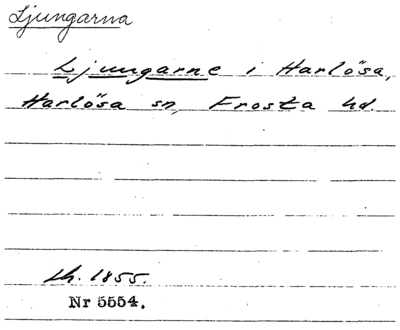 Ljungarna
Ljungarne i Harlösa,
Harlösa sn, Frosta hd.
1855.
Nr 5554.